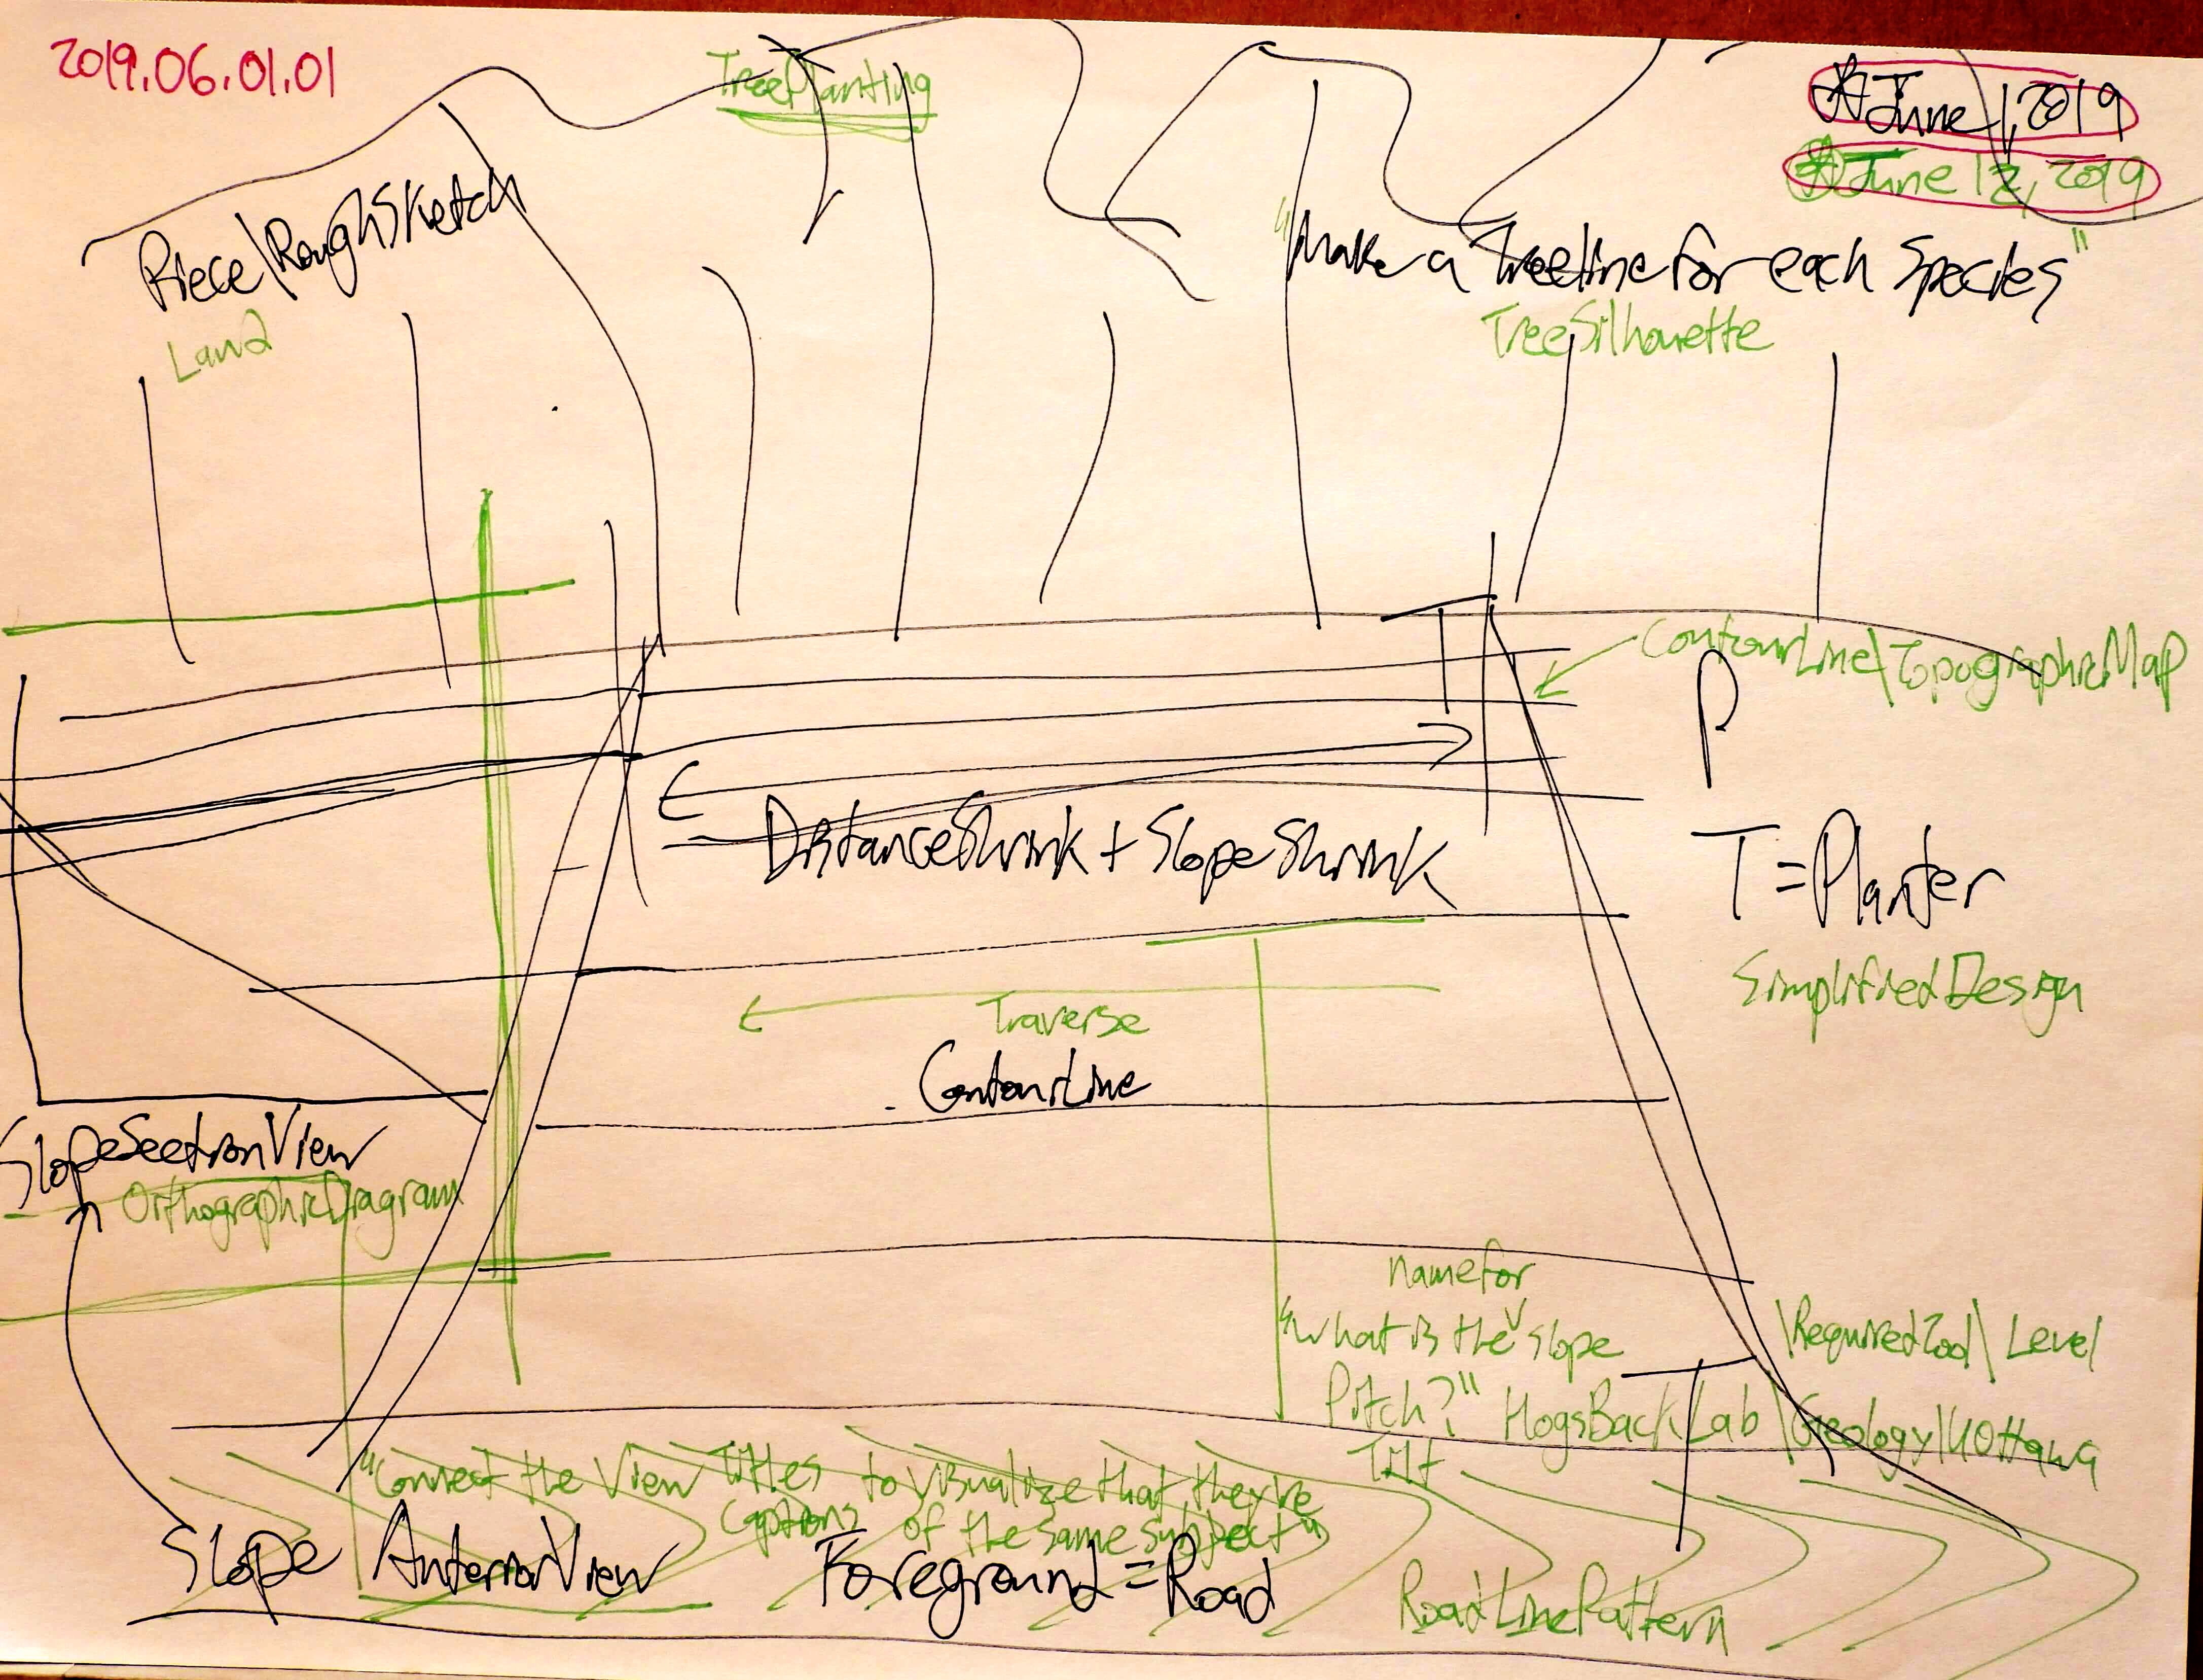 2019.06.01.01
TreePlanting
June 1, 2019
June 12, 2019
Piece\RoughSketch
Land
"Make a Treeline for each Species"
TreeSilhouette
ContourLine\TopographicMap
P
DistanceShrink + SlopeShrink
T = Planter
SimplifiedDesign
Traverse
ContourLine
SlopeSectionView
OrthographicDiagram
name for
"what is the v slope
Pitch?"
Tilt
\RequiredTool\Level
HogsBackLab\Geology\UOttawa
"Connect the View Titles to visualize that they're
Captions of the same subject"
Slope AnteriorView
Foreground = Road
RoadLinePattern